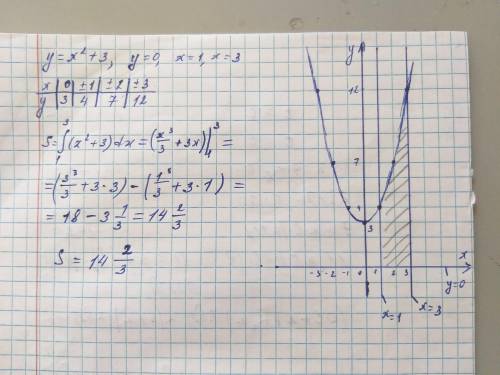 y = x² + 3, y = 0, x = 1, x = 3
x | 0 | ±1 | ±2 | ±3
y | 3 | 4 | 7 | 12
S = ∫₁³ (x² + 3) dx = (x³/3 + 3x) |₁³ =
= (3³/3 + 3·3) − (1³/3 + 3·1) =
= 18 − 3 1/3 = 14 2/3
S = 14 2/3
y
12
7
4
3
-3 -2 -1 0 1 2 3 x
y=0
x=1 x=3